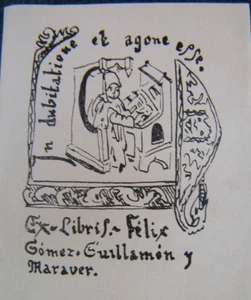 n dubitatione et agone esse.
Ex-Libris.- Félix
Gómez-Guillamón y
Maraver.